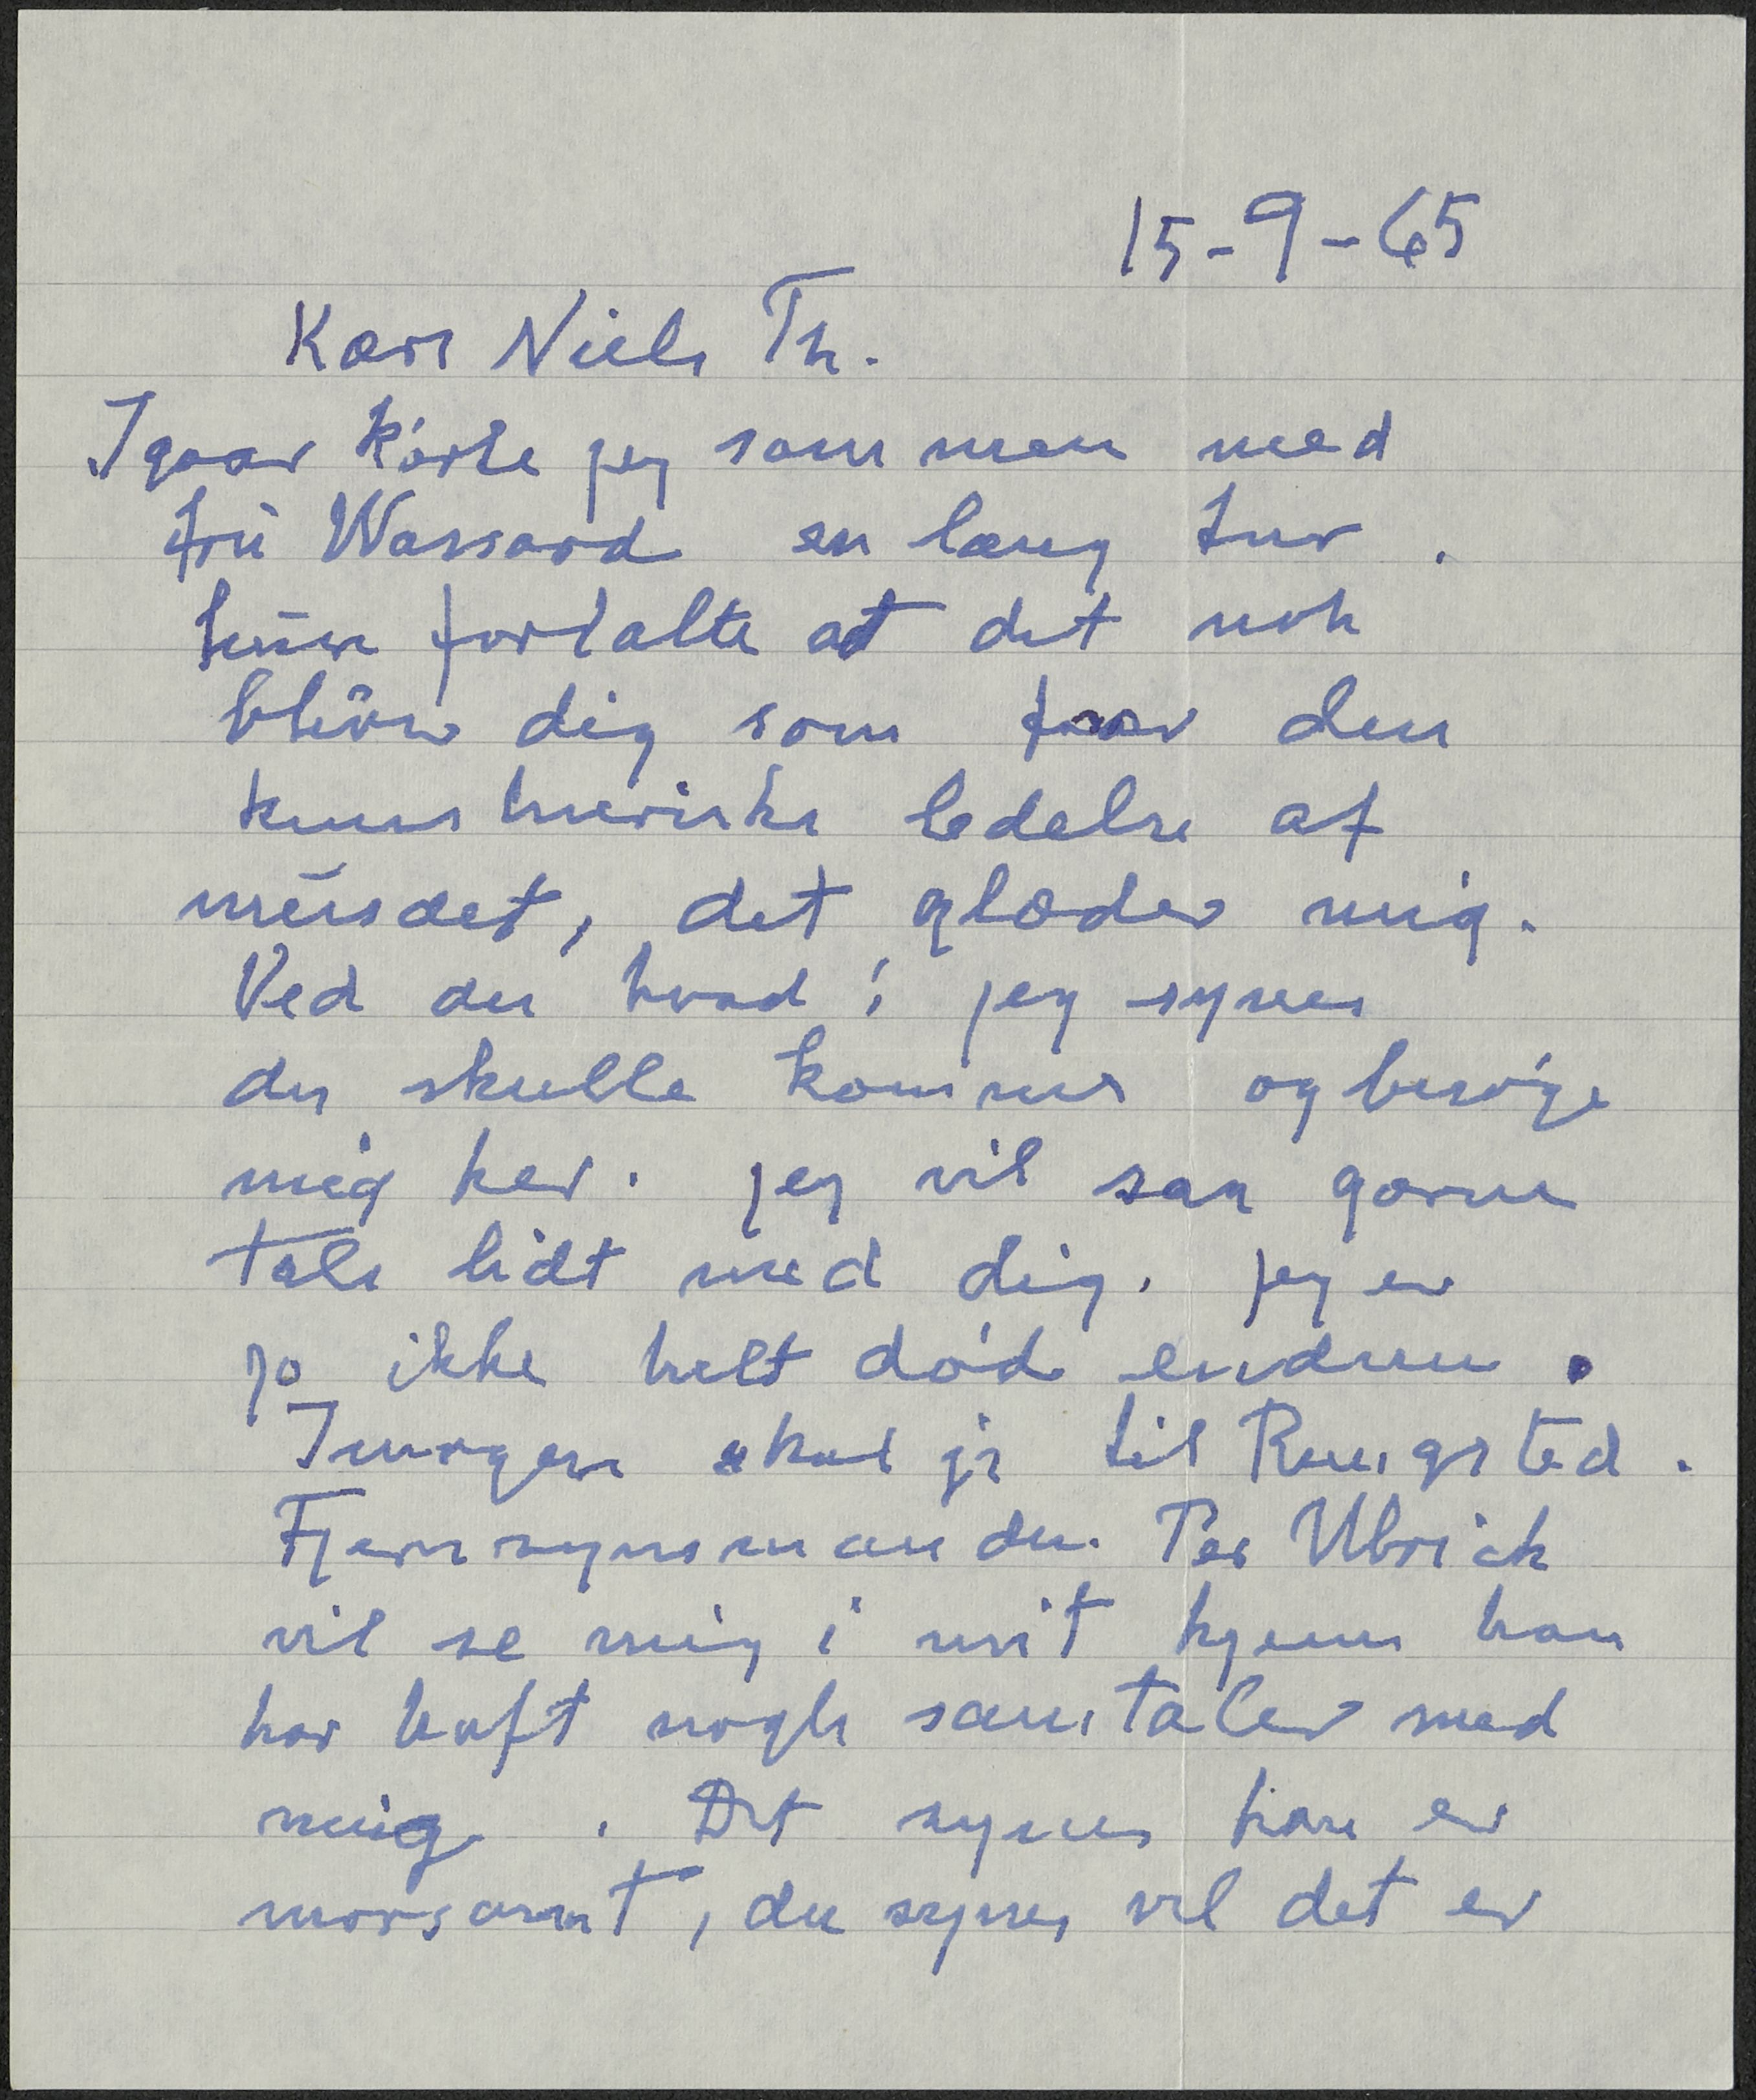 15-9-65
Kære Niels Th.
Igaar kørte jeg sammen med
fru Wassard en lang tur.
hun fortalte at det nok
bliver dig som faar den
kunstneriske ledelse af
museet, det glæder mig.
Ved du hvad; jeg synes
du skulle komme og besøge
mig her. jeg vil saa gerne
tale lidt med dig. jeg er
jo ikke helt død endnu.
Imorgen skal jeg til Rungsted.
Fjernsynsmanden. Per Ulbrick
vil se mig i mit hjem han
har haft nogle samtaler med
mig. Det synes han er
morsomt, du synes vel det er